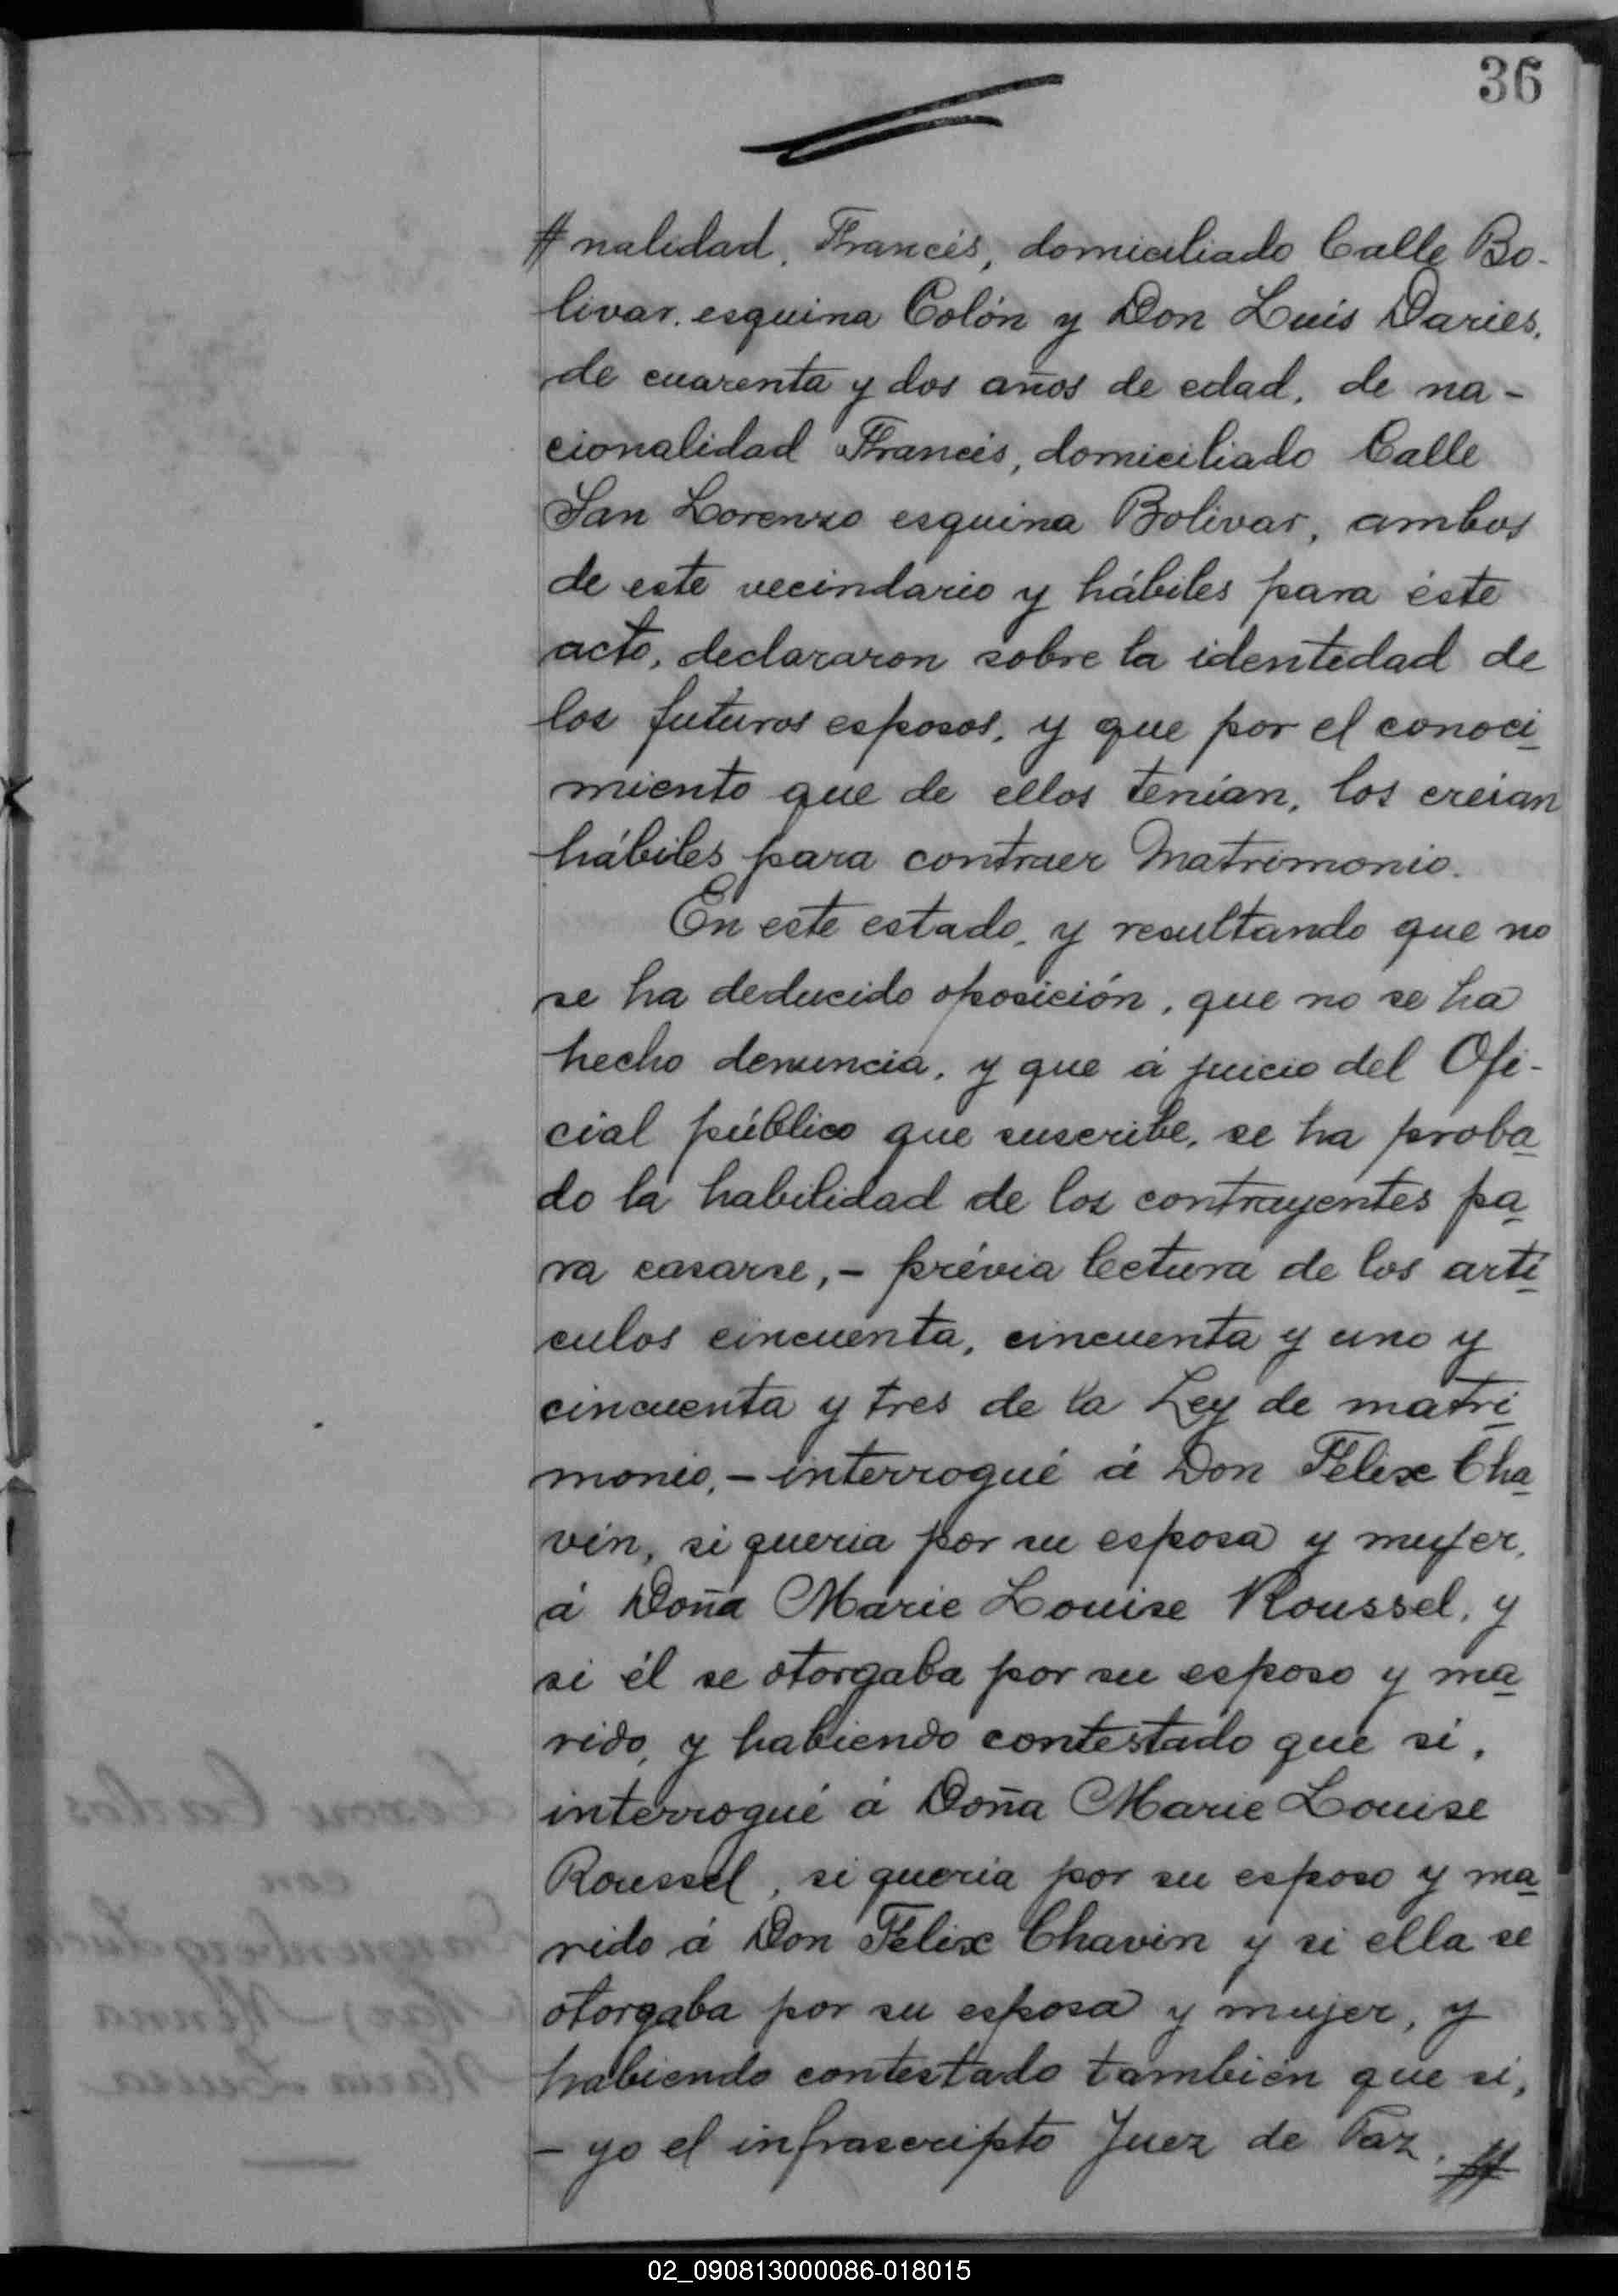 36
# nalidad, Francés, domiciliado Calle Bo-
livar, esquina Colón y Don Luis Daries,
de cuarenta y dos años de edad, de na-
cionalidad Francés, domiciliado Calle
San Lorenzo esquina Bolivar, ambos
de este vecindario y hábiles para éste
acto, declararon sobre la identidad de
los futuros esposos, y que por el conoci
miento que de ellos tenían, los creían
hábiles para contraer Matrimonio.
En este estado, y resultando que no
se ha deducido oposición, que no se ha
hecho denuncia, y que á juicio del Ofi-
cial público que suscribe, se ha proba
do la habilidad de los contrayentes pa
ra casarse, - prévia lectura de los arti
culos cincuenta, cincuenta y uno y
cincuenta y tres de la Ley de matri
monio, - interrogué á Don Félix Cha
vin, si queria por su esposa y mujer,
á Doña Marie Louise Roussel, y
si él se otorgaba por su esposo y ma
rido, y habiendo contestado que si,
interrogué á Doña Marie Louise
Roussel, si queria por su esposo y ma
rido á Don Félix Chavin y si ella se
otorgaba por su esposa y mujer, y
habiendo contestado también que si,
- yo el infrascripto Juez de Paz, #
02_090813000086-018015